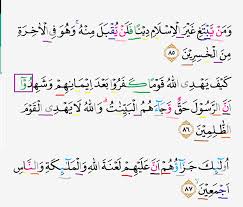 وَمَنْ يَّبْتَغِ غَيْرَ الْاِسْلَامِ دِيْنًا فَلَنْ يُّقْبَلَ مِنْهُۚ وَهُوَ فِى الْاٰخِرَةِ
مِنَ الْخٰسِرِيْنَ ٨٥
كَيْفَ يَهْدِى اللّٰهُ قَوْمًا كَفَرُوْا بَعْدَ اِيْمَانِهِمْ وَشَهِدُوْٓا
اَنَّ الرَّسُوْلَ حَقٌّ وَّجَاۤءَهُمُ الْبَيِّنٰتُۗ وَاللّٰهُ لَا يَهْدِى الْقَوْمَ
الظّٰلِمِيْنَ ٨٦
اُولٰۤىِٕكَ جَزَاۤؤُهُمْ اَنَّ عَلَيْهِمْ لَعْنَةَ اللّٰهِ وَالْمَلٰۤىِٕكَةِ وَالنَّاسِ
اَجْمَعِيْنَۙ ٨٧